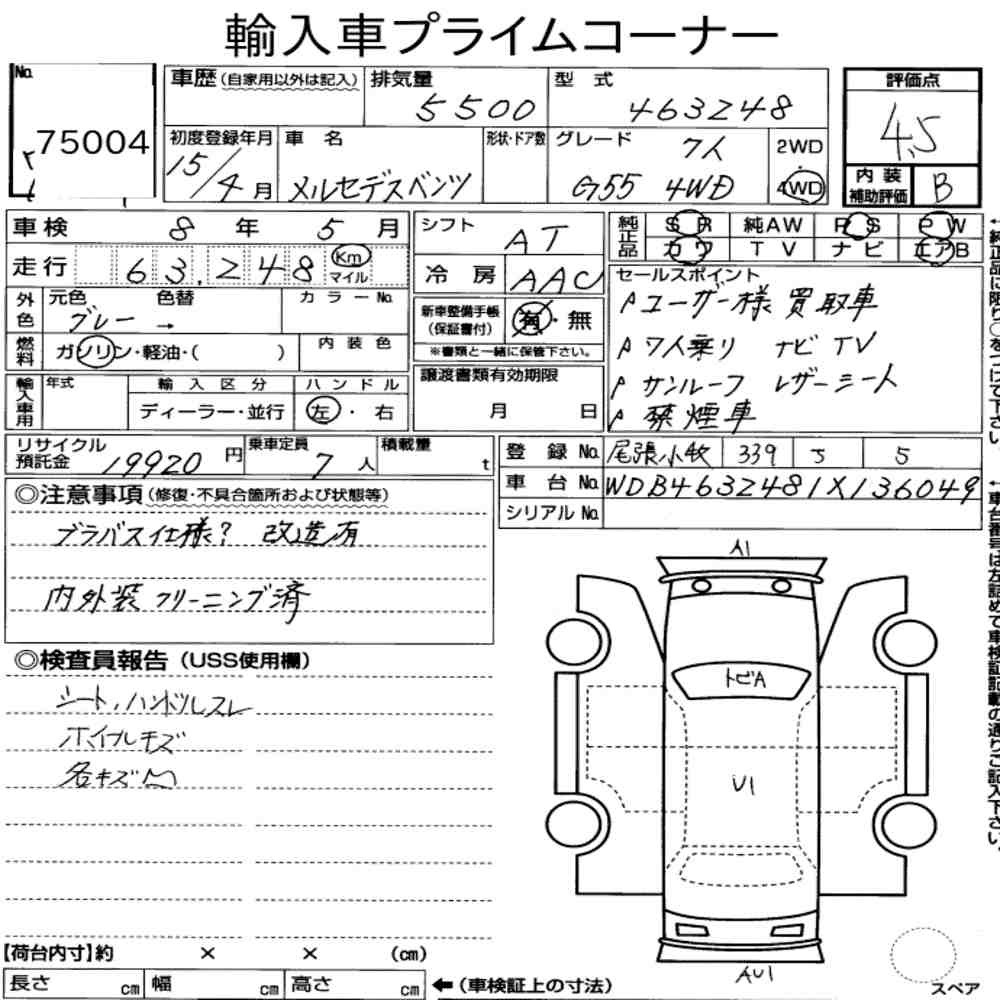 輸入車プライムコーナー
No. 75004
車歴 (自家用以外は記入) 排気量 5500 型式 463248
評価点 4.5
初度登録年月 15/4月 車名 メルセデスベンツ 形状・ドア数 グレード 7人 G55 4WD 2WD 4WD
内装補助評価 B
車検 8年 5月
走行 63,248 Km マイル
シフト AT
冷房 AAC
純正品 SR 純AW PS PW
カワ TV ナビ エアB
外色 元色 グレー → 色替 カラーNo.
燃料 ガソリン・軽油・( ) 内装色
新車整備手帳(保証書付) 有・無
※書類と一緒に保管下さい。
譲渡書類有効期限 月 日
セールスポイント
ユーザー様買取車
7人乗り ナビ TV
サンルーフ レザーシート
禁煙車
輸入車用 年式 輸入区分 ディーラー・並行 ハンドル 左・右
リサイクル預託金 19920円 乗車定員 7人 積載量 t
登録No. 尾張小牧 339 5
車台No. WDB4632481X136049
シリアルNo.
◎注意事項 (修復・不具合箇所および状態等)
ブラバス仕様? 改造有
内外装クリーニング済
◎検査員報告 (USS使用欄)
シート,ハンドルスレ
ホイルキズ
各キズ凹
A1
トビA
U1
AU1
スペア
【荷台内寸】約 × × (cm)
長さ cm 幅 cm 高さ cm ←(車検証上の寸法)
←純正品に限り○をつけて下さい。
←車台番号は左詰めで車検証記載の通りご記入下さい。